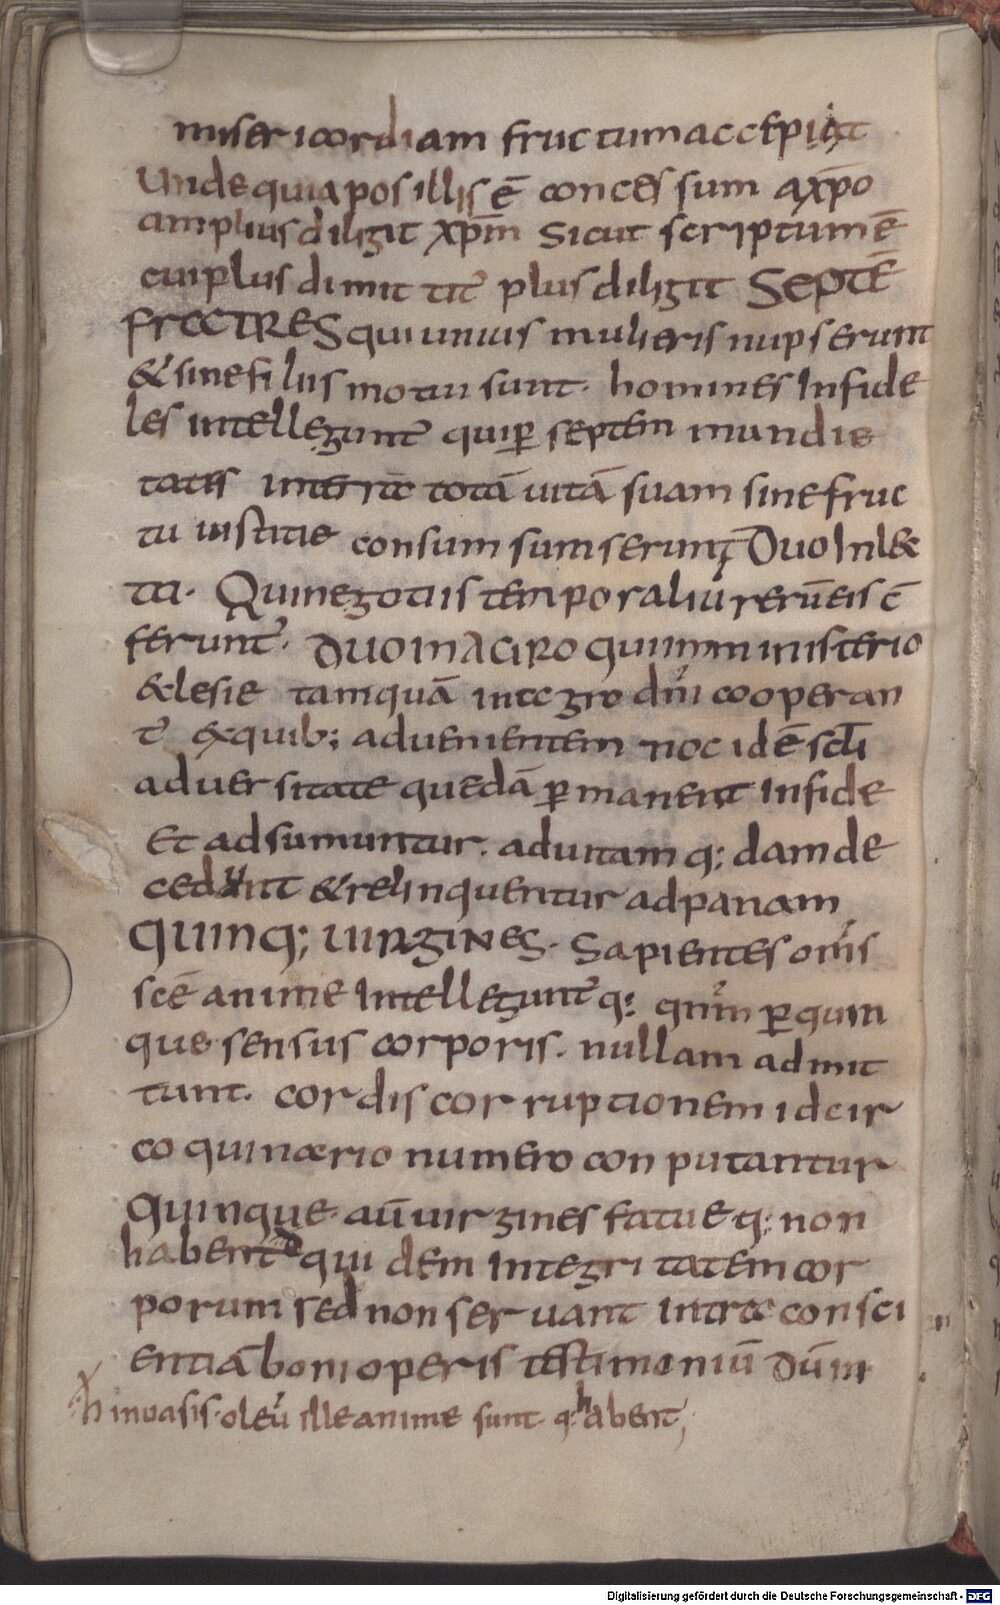 misericordiam fructum accepiat
Unde quia posillis ē concessum axp̄o
amplius diligit xp̄m Sicut scriptum ē
cui plus dimittit̄ plus diligit Septē
fratres qui unius mulieris nupserunt
& sine filiis motui sunt. homines Infide
les intellegunt̄ qui ꝑ septem mundie
tatis totā uitā suam sine fruc
tu iustitie consumsumserunt, Duo In lec
to. Qui negotiis temporaliū rerū eis c̄
ferunt̄. duo in agro qui in ministerio
&clesie tamquā in agro dn̄i cooperan
t̄ exquib; aduenientem noc idē scl̄i
aduersitate quedā ꝑmanent Infide
Et adsumuntur. adunamq; damde
cedunt & relinquentur ad panam
Quinq; uirgines. Sapientes om̄s
scē anime Intellegunt̄ q; qm̄ ꝑ quin
que sensus corporis. nullam admit
tunt. cordis corruptionem idcir
co quinario numero conputantur
Quinque aū uirgines fatue q; non
habent quidem Integritatem cor
porum sed non seruant intra consci
entiā boni operis testimoniū dūm
h in uasis. oleū ille anime sunt. q; habent;
Digitalisierung gefördert durch die Deutsche Forschungsgemeinschaft - DFG